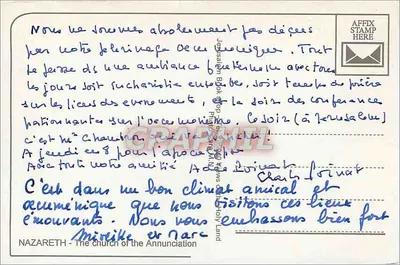 Nous ne sommes absolument pas déçus
par notre pèlerinage oecuménique. Tout
se passe ds une ambiance fraternelle avec tous
les jours soit Eucharistie ensemble, soit temps de prière
sur les lieux des évènements, et le soir des conférences
passionnantes sur l'oecuménisme. Ce soir (à Jérusalem)
c'est Mr
A jeudi en 8 pour l'apocalypse
Avec toute notre amitié
Charles Poinat
C'est dans un bon climat amical et
œcuménique que nous visitons ces lieux
émouvants. Nous vous embrassons bien fort
Mireille et Marc
NAZARETH - The church of the Annunciation
AFFIX
STAMP
HERE